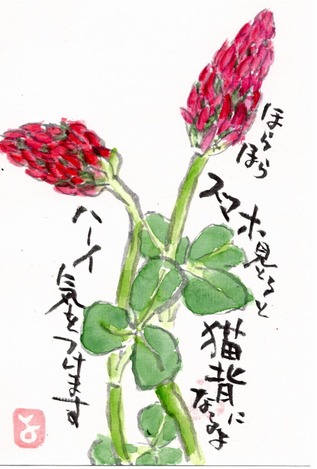 ほらほら
スマホ見とると
猫背に
なるよ
ハーイ
気をつけます